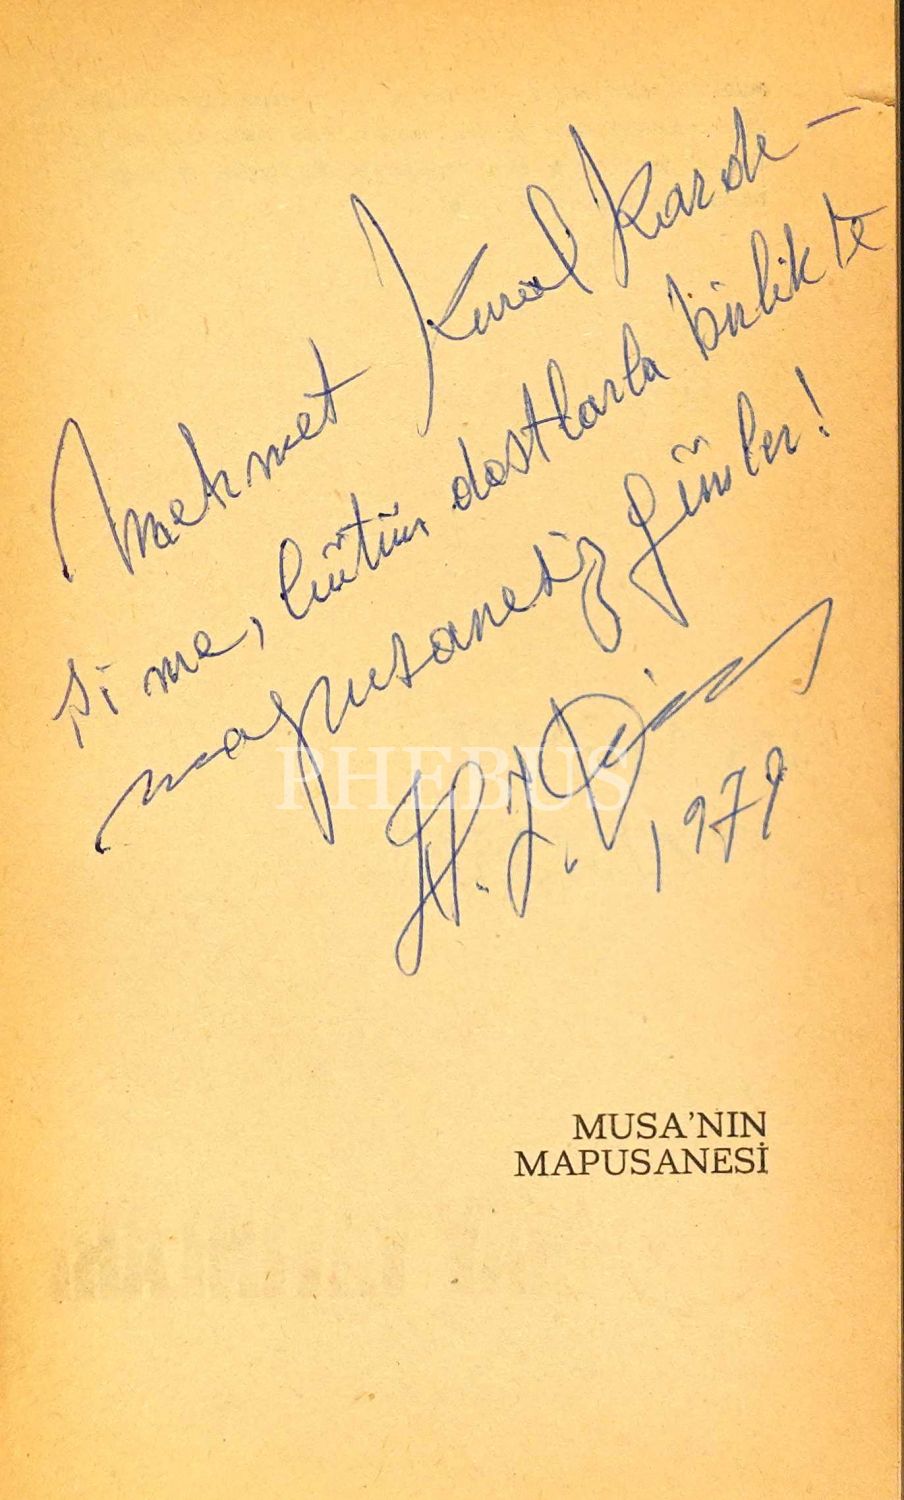 Mehmet Kural Karde-
şime, bütün dostlarla birlikte
mapusanesiz günler!
1979
PHEBUS
MUSA'NIN
MAPUSANESİ